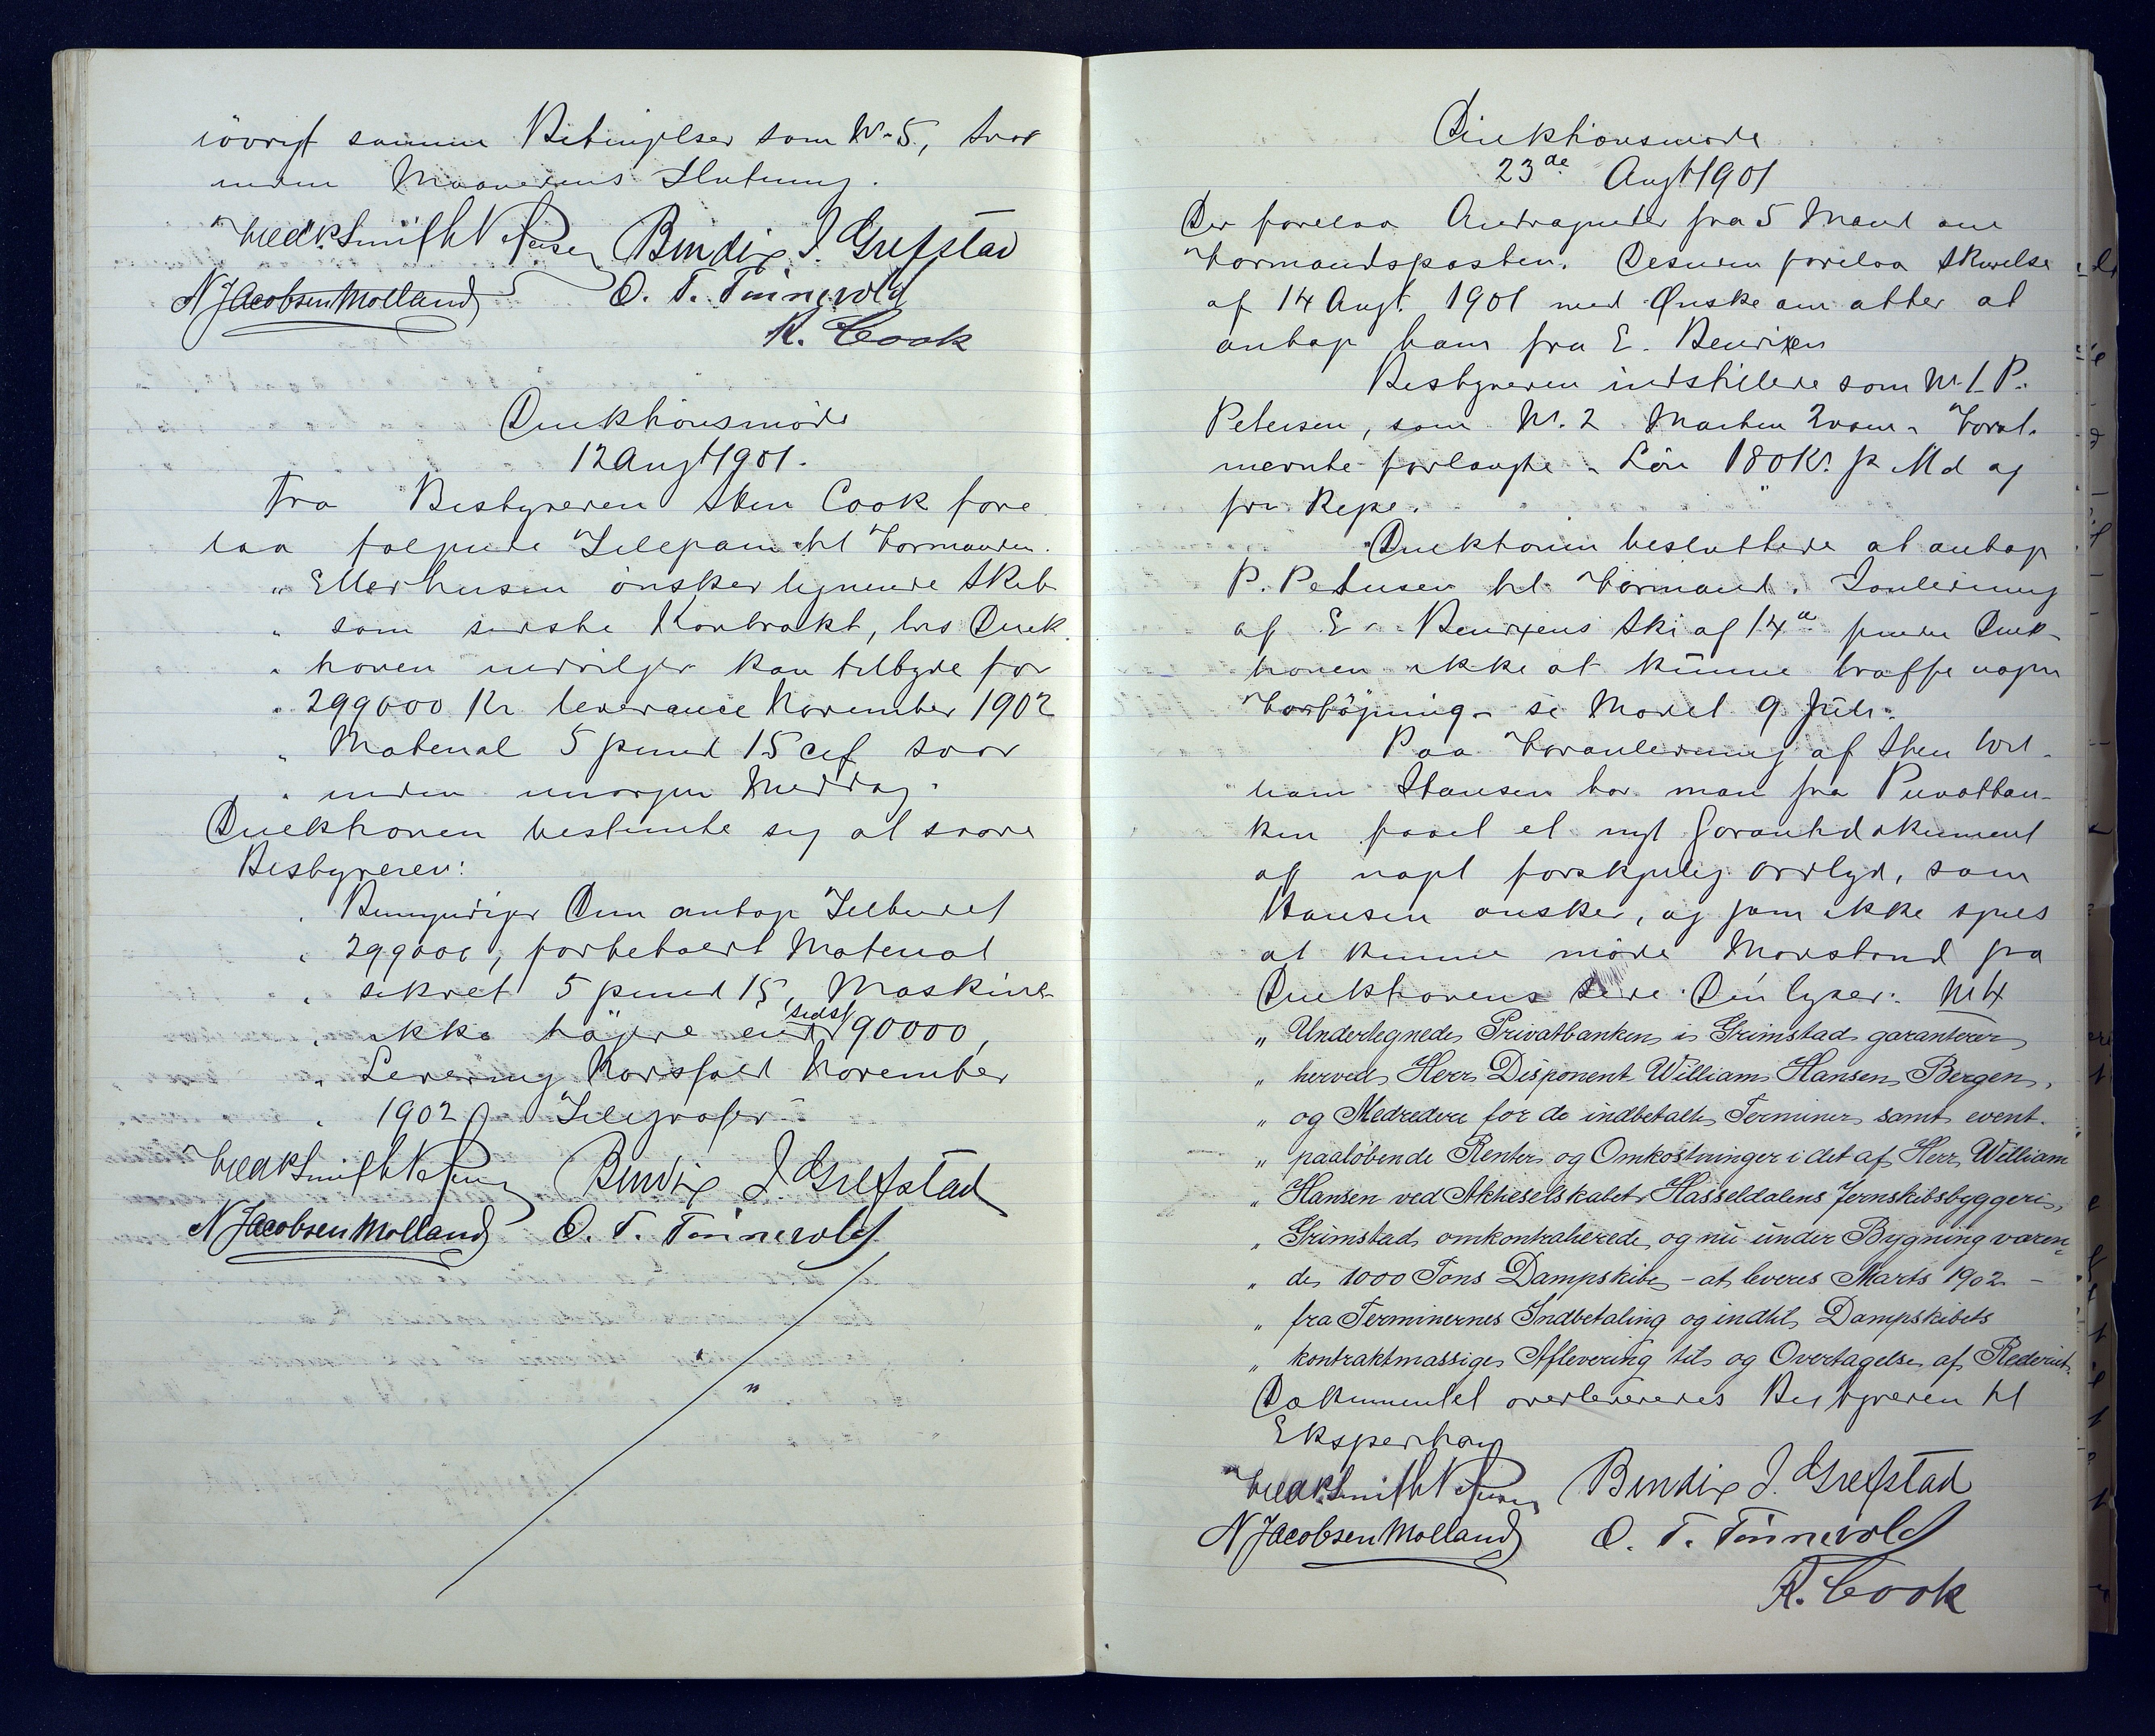 iövrigt samme Betingelser som No 5, svar
inden Maanedens Slutning.
Fredk Smith Petersen Bendix J. Grefstad
N Jacobsen Molland O. T. Tönnevold
R. Cook
Direktionsmöde
12 Augt 1901.
Fra Bestyreren Hr Cook fore
laa følgende Telegram til Formanden.
„ Ellerhusen önsker lignende Skib
„ som sidste Kontrakt, hvis Direk
„ tionen medvilger kan tilbyde for
„ 299000 Kr leverance November 1902
„ Material 5 pund 15 cif svar
„ inden imorgen Middag.
Direktionen bestemte sig at svare
Bestyreren:
„ Bemyndiger Dem antage Tilbudet
„ 299000, forbeholdt Material
„ sikret 5 pund 15, Maskine
„ ikke höjere end sidst 90000,
„ Levering Nordsfoed November
„ 1902 Telegrafer
Fredk Smith Petersen Bendix J. Grefstad
N Jacobsen Molland O. T. Tönnevold
Direktionsmöde
23de Augt 1901
Der forelaa Andragender fra 5 Mand om
Formandsposten. Desuden forelaa Skrivelse
af 14 Augt. 1901 med Ønske om atter at
antage ham fra E. Benrixen
Bestyreren indstillede som No 1 P.
Petersen, som No. 2 Marten Foral.
nevnte forlangte Lön 180 Kr. pr Md og
fri Rejse.
Direktionen besluttede at antage
P. Petersen til Formand. I Anledning
af E. Benrixens Skr af 14de finder Direk-
tionen ikke at kunne træffe nogen
Forföjning se Mödet 9 Juli.
Paa Foranledning af Hr Wil-
liam Hansen har man fra Privatban-
ken faaet et nyt Garantidokument
af noget forskjelig Ordlyd, som
Hansen ønsker, og som ikke synes
at kunne möde Modstand fra
Direktionens Side. Den lyder: No 4
„ Undertegnede Privatbanken i Grimstad garanterer
„ herved Herr Disponent William Hansen, Bergen,
„ og Medredere for de indbetalte Terminer samt event.
„ paalöbende Renter og Omkostninger i det af Herr William
„ Hansen ved Aktieselskabet Hasseldalens Jernskibsbyggeri,
„ Grimstad, omkontraherede og nu under Bygning væren-
„ de 1000 Tons Dampskibe - at leveres Marts 1902 -
„ fra Terminernes Indbetaling og indtil Dampskibets
„ kontraktmæssige Aflevering til og Overtagelse af Rederiet.
Dokumentet overleveredes Bestyreren til
Ekspedition
Fredk Smith Petersen Bendix J. Grefstad
N Jacobsen Molland O. T. Tönnevold
R. Cook